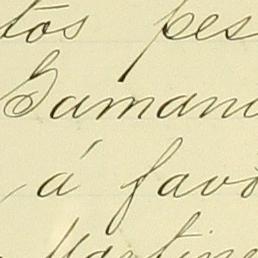 tos pes
Gamano
á favo
Martine